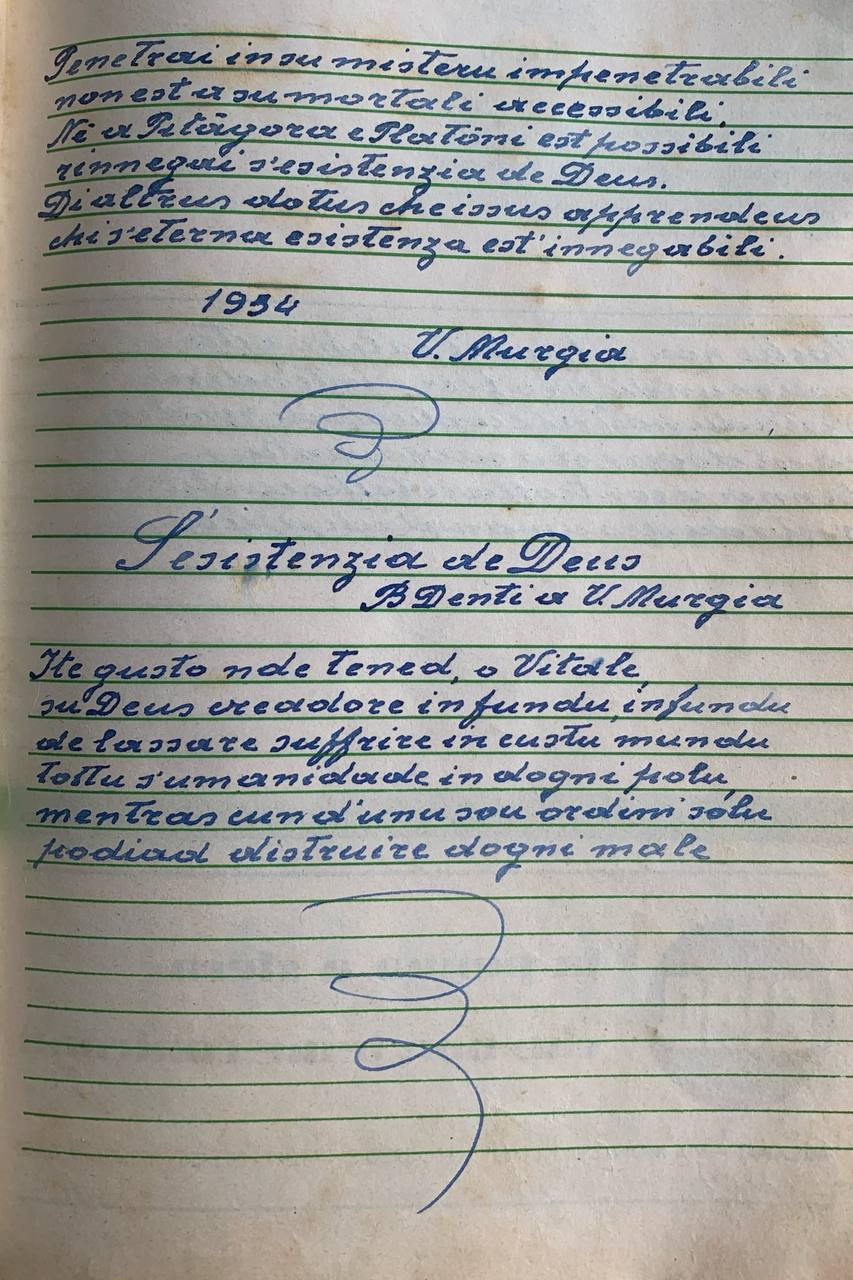 Penetrai in su misteru impenetrabili
non est a su mortali accessibili.
Nè a Pitàgora e Platòni est possibili
rinnegai s'esistenzia de Deus.
Di altrus dotus che issus apprendeus
chi s'eterna esistenza est'innegabili.
1934
V. Murgia
S'esistenzia de Deus
B Denti a V. Murgia
Ite gusto nde tened, o Vitale,
su Deus creadore in fundu, in fundu
de lassare suffrire in custu mundu
tottu s'umanidade in dogni polu,
mentras cun d'unu sou ordini sólu
podiad distruire dogni male